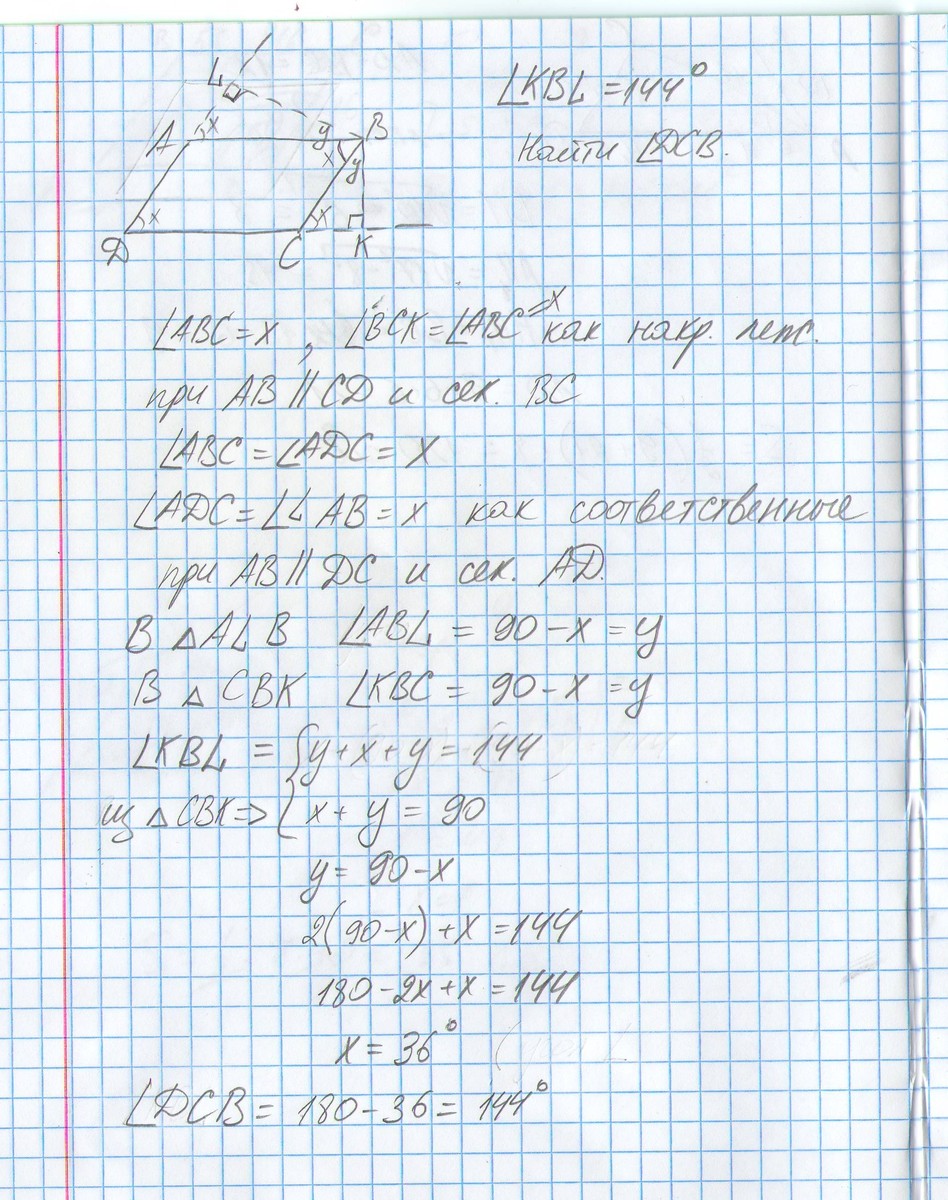 ∠KBL = 144°
Найти ∠DCB.
L
A x y B
x y
D x C x K
∠ABC = x , ∠BCK = ∠ABC = x как накр. леж.
при AB || CD и сек. BC
∠ABC = ∠ADC = x
∠ADC = ∠LAB = x как соответственные
при AB || DC и сек. AD.
В △ALB ∠ABL = 90 - x = y
В △CBK ∠KBC = 90 - x = y
∠KBL = { y + x + y = 144
из △CBK => { x + y = 90
y = 90 - x
2(90 - x) + x = 144
180 - 2x + x = 144
x = 36°
∠DCB = 180 - 36 = 144°